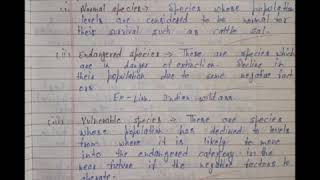 (i) Normal species → Species whose population
levels are considered to be normal for
their survival such as cattle sal.
(ii) Endangered species → These are species which
are in danger of extinction. Decline in
their population due to some negative fact
ors
Ex - Lion, Indian wild ass.
(iii) Vulnerable species → These are species
whose population has declined to levels
from where it is likely to move
into the endangered category in the
near future if the negative factors to
operate